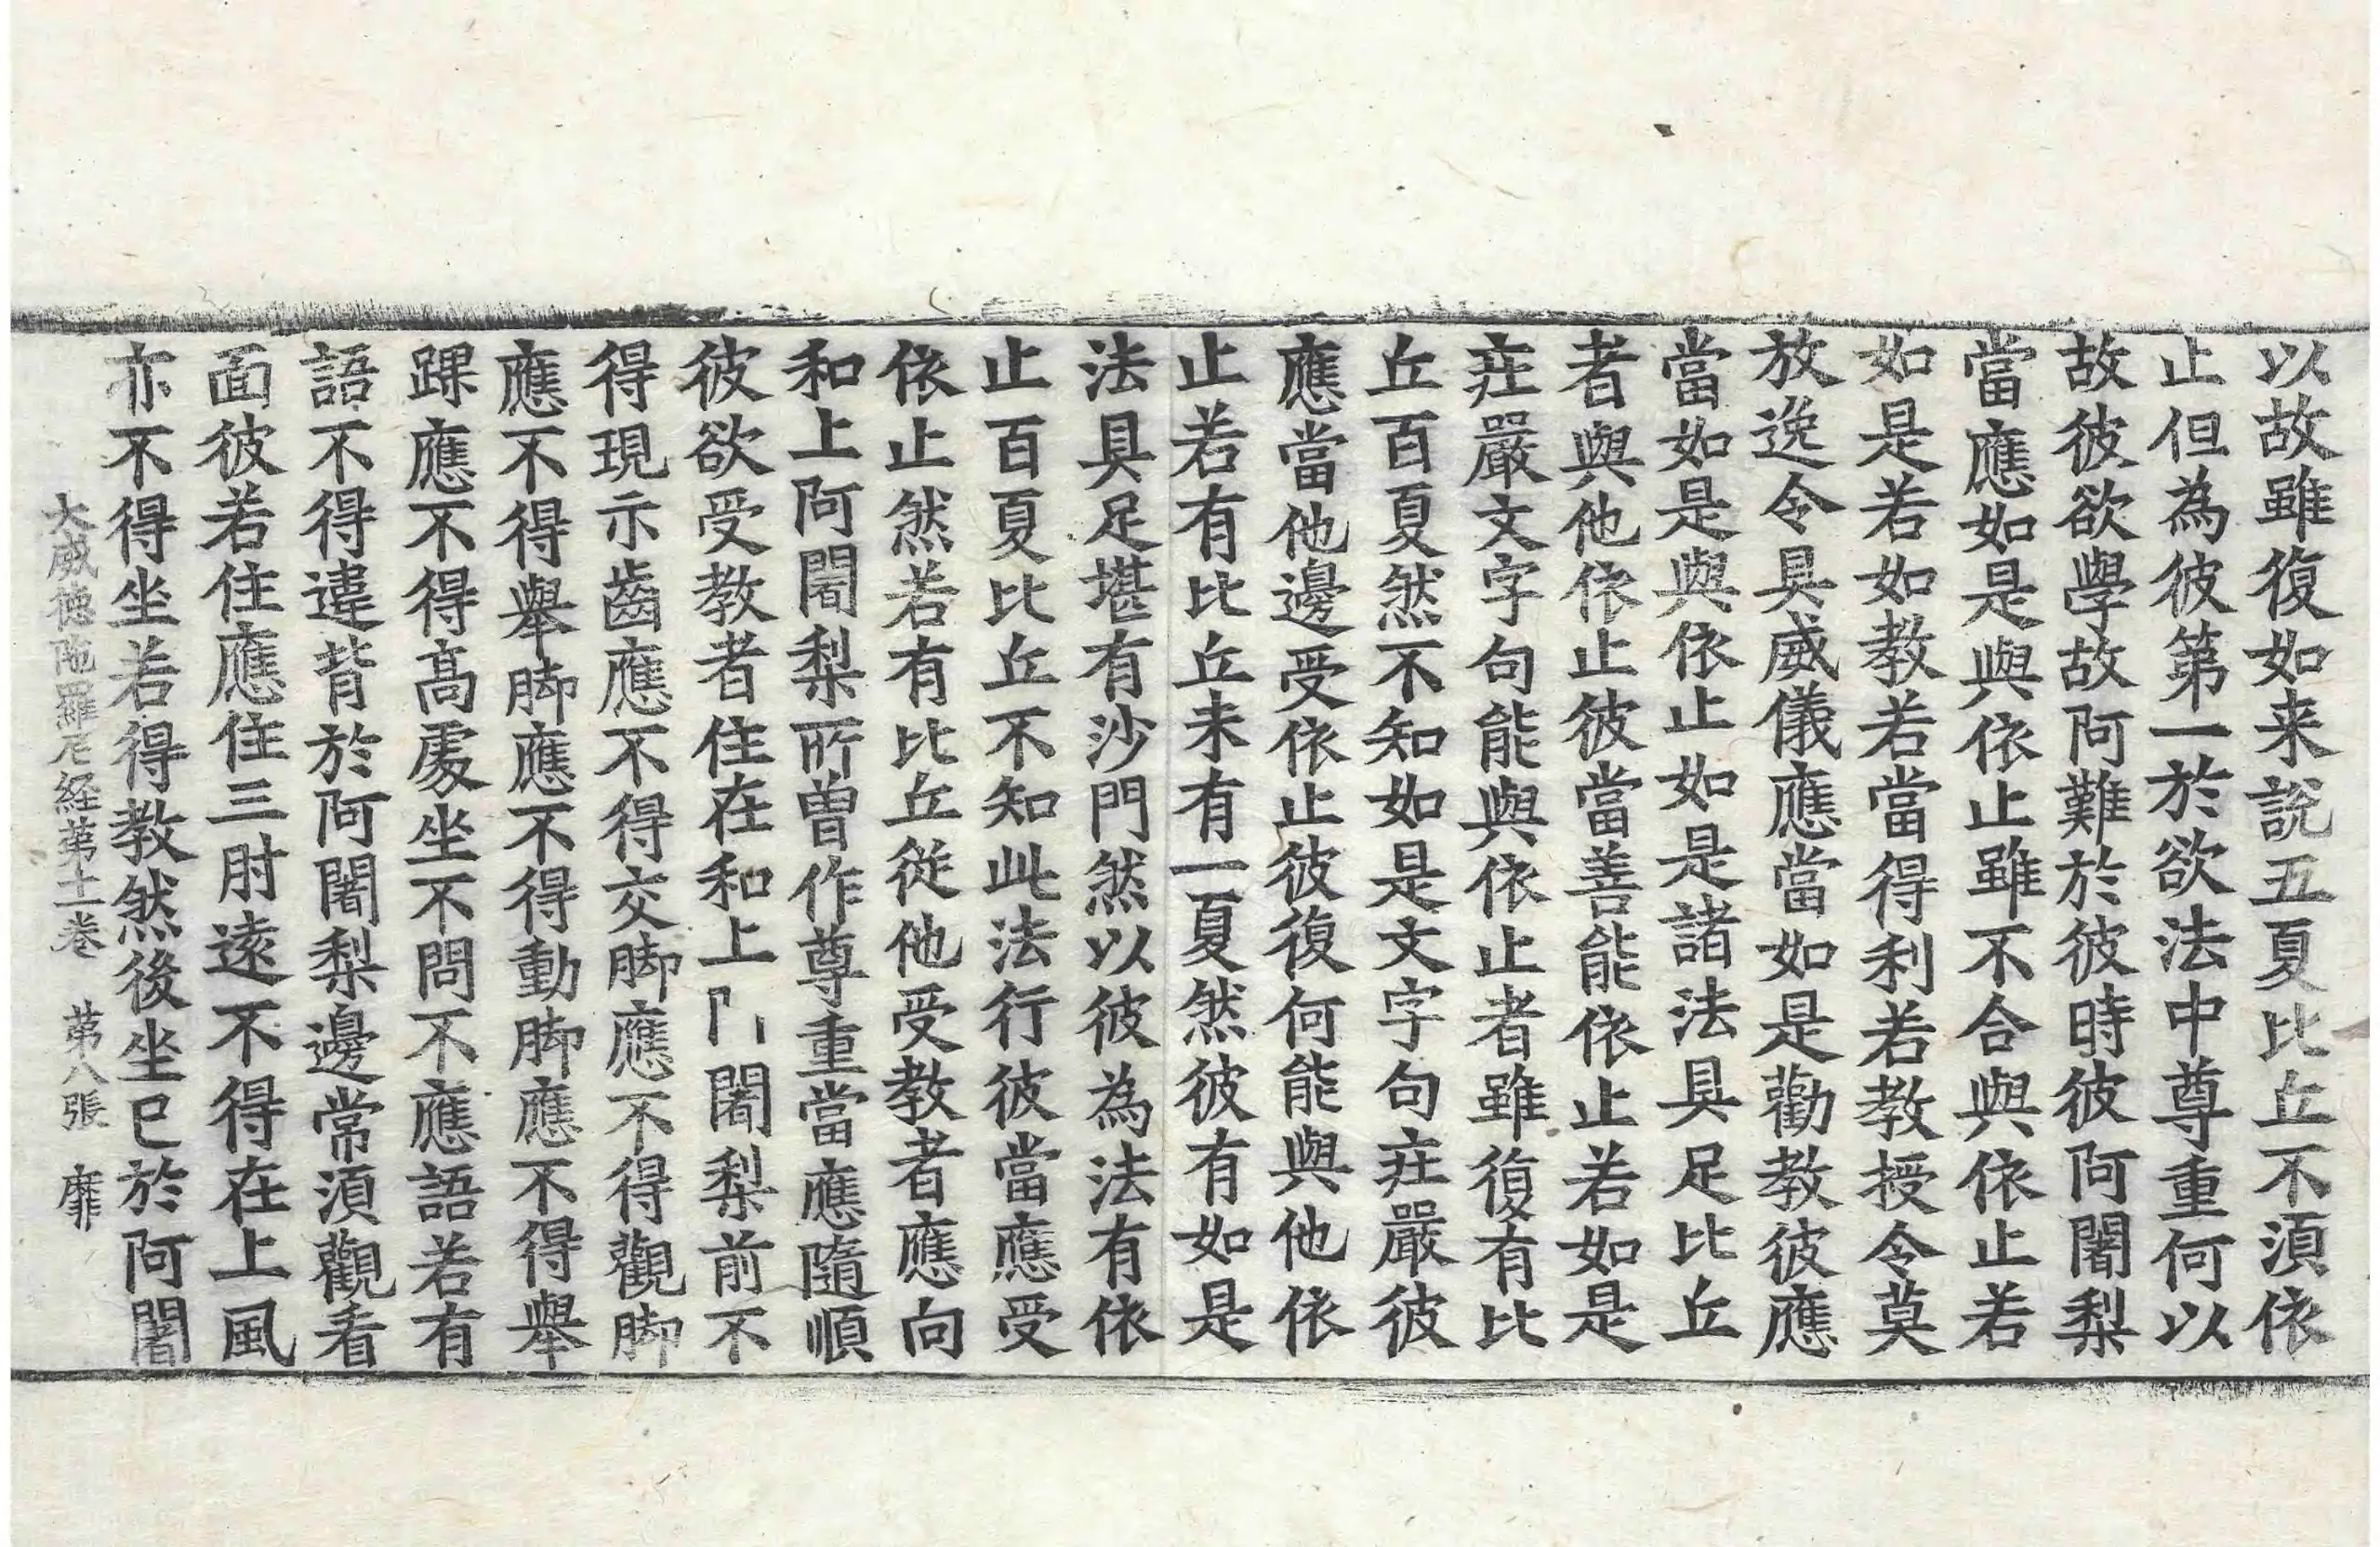 以故雖復如来說五夏比丘不湏依
止但為彼第一於欲法中尊重何以
故彼欲學故阿難於彼時彼阿闍梨
當應如是與依止雖不合與依止若
如是若如教若當得利若教授令莫
放逸令具威儀應當如是勸教彼應
當如是與依止如是諸法具足比丘
者與他依止彼當善能依止若如是
莊嚴文字句能與依止者雖復有比
丘百夏然不知如是文字句莊嚴彼
應當他邊受依止彼復何能與他依
止若有比丘未有一夏然彼有如是
法具足堪有沙門然以彼為法有依
止百夏比丘不知此法行彼當應受
依止然若有比丘從他受教者應向
和上阿闍梨所曽作尊重當應隨順
彼欲受教者住在和上闍梨前不
得現示齒應不得交脚應不得觀脚
應不得舉脚應不得動脚應不得舉
踝應不得高處坐不問不應語若有
語不得違背於阿闍梨邊常湏觀看
面彼若住應住三肘遠不得在上風
亦不得坐若得教然後坐已於阿闍
大威德陁羅尼経第十二卷　第八張　靡